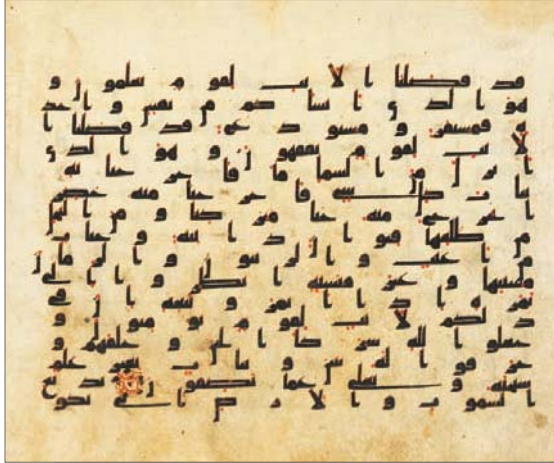 قد فصلنا الايت لقوم يعلمون و
هو الذى انشاكم من نفس وحد
ه فمستقر و مستودع قد فصلنا ا
لايت لقوم يفقهون و هو الذى
انزل من السما ما فاخرجنا به
نبات كل شى فاخرجنا منه خضر
ا نخرج منه حبا متراكبا و من النخل
من طلعها قنوان دانيه و جنات
من اعناب و الزيتون و الرمان
مشتبها و غير متشبه انظروا الى
ثمره اذا اثمر و ينعه ان فى
ذلكم لايت لقوم يومنون و
جعلوا لله شركا الجن و خلقهم و
خرقوا له بنين و بنات بغير علم
سبحنه و تعلى عما يصفون بديع
السموت و الارض انى يكون